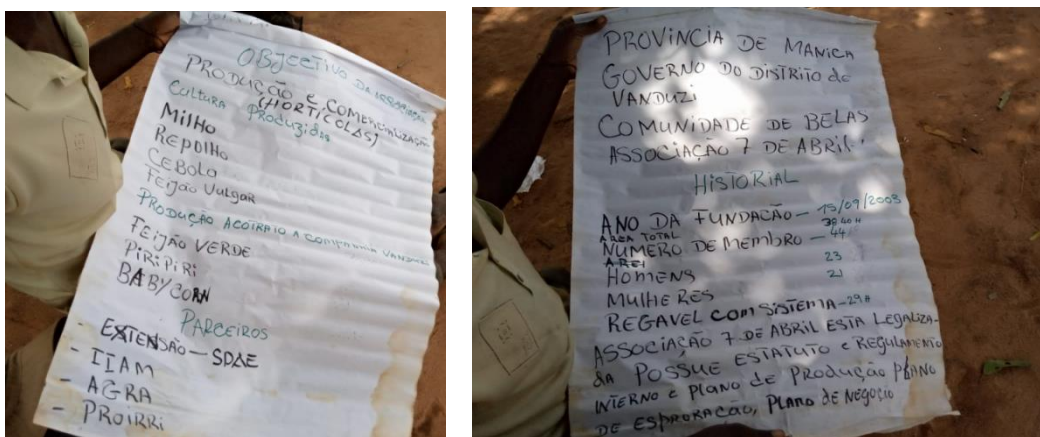 OBJECTIVO DA ASSOCIAÇÃO
PRODUÇÃO e COMERCIALIZAÇÃO
(HORTICOLAS)
CULTURA PRODUZIDA
MILHO
REPOLHO
CEBOLA
FEIJÃO VULGAR
PRODUÇÃO A COMPANHIA VANDUZI
FEIJÃO VERDE
PiRiPiRi
BABYCORN
PARCEIROS
EXTENSÃO - SDAE
- IIAM
- AGRA
- PROIRRI
PROVINCIA DE MANICA
GOVERNO DO DISTRITO de
VANDUZI
COMUNIDADE DE BELAS
ASSOCIAÇÃO 7 DE ABRIL
HISTORIAL
ANO DA FUNDAÇÃO - 15/09/2003
AREA TOTAL
NUMERO DE MEMBRO - 44
HOMENS 23
MULHERES 21
REGAVEL COM SISTEMA - 29H
ASSOCIAÇÃO 7 DE ABRIL ESTA LEGALIZA-
da POSSUE ESTATUTO e REGULAMENTO
INTERNO e PLANO DE PRODUÇÃO PLANO
DE ESPRORAÇÃO, PLANO DE NEGOCIO